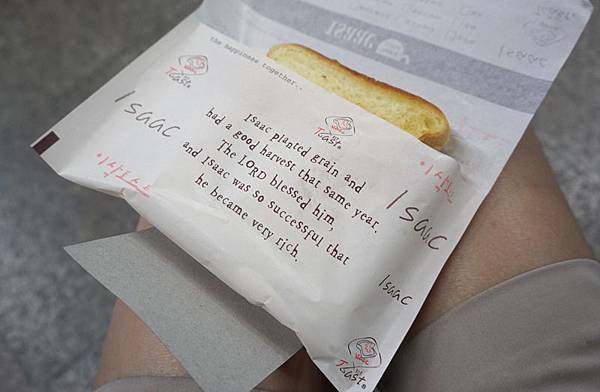 ISAAC
Isaac
the happiness together..
Toast
Isaac
Toast
Isaac planted grain and
had a good harvest that same year.
The LORD blessed him,
and Isaac was so successful that
he became very rich.
Isaac
Isaac
Toast